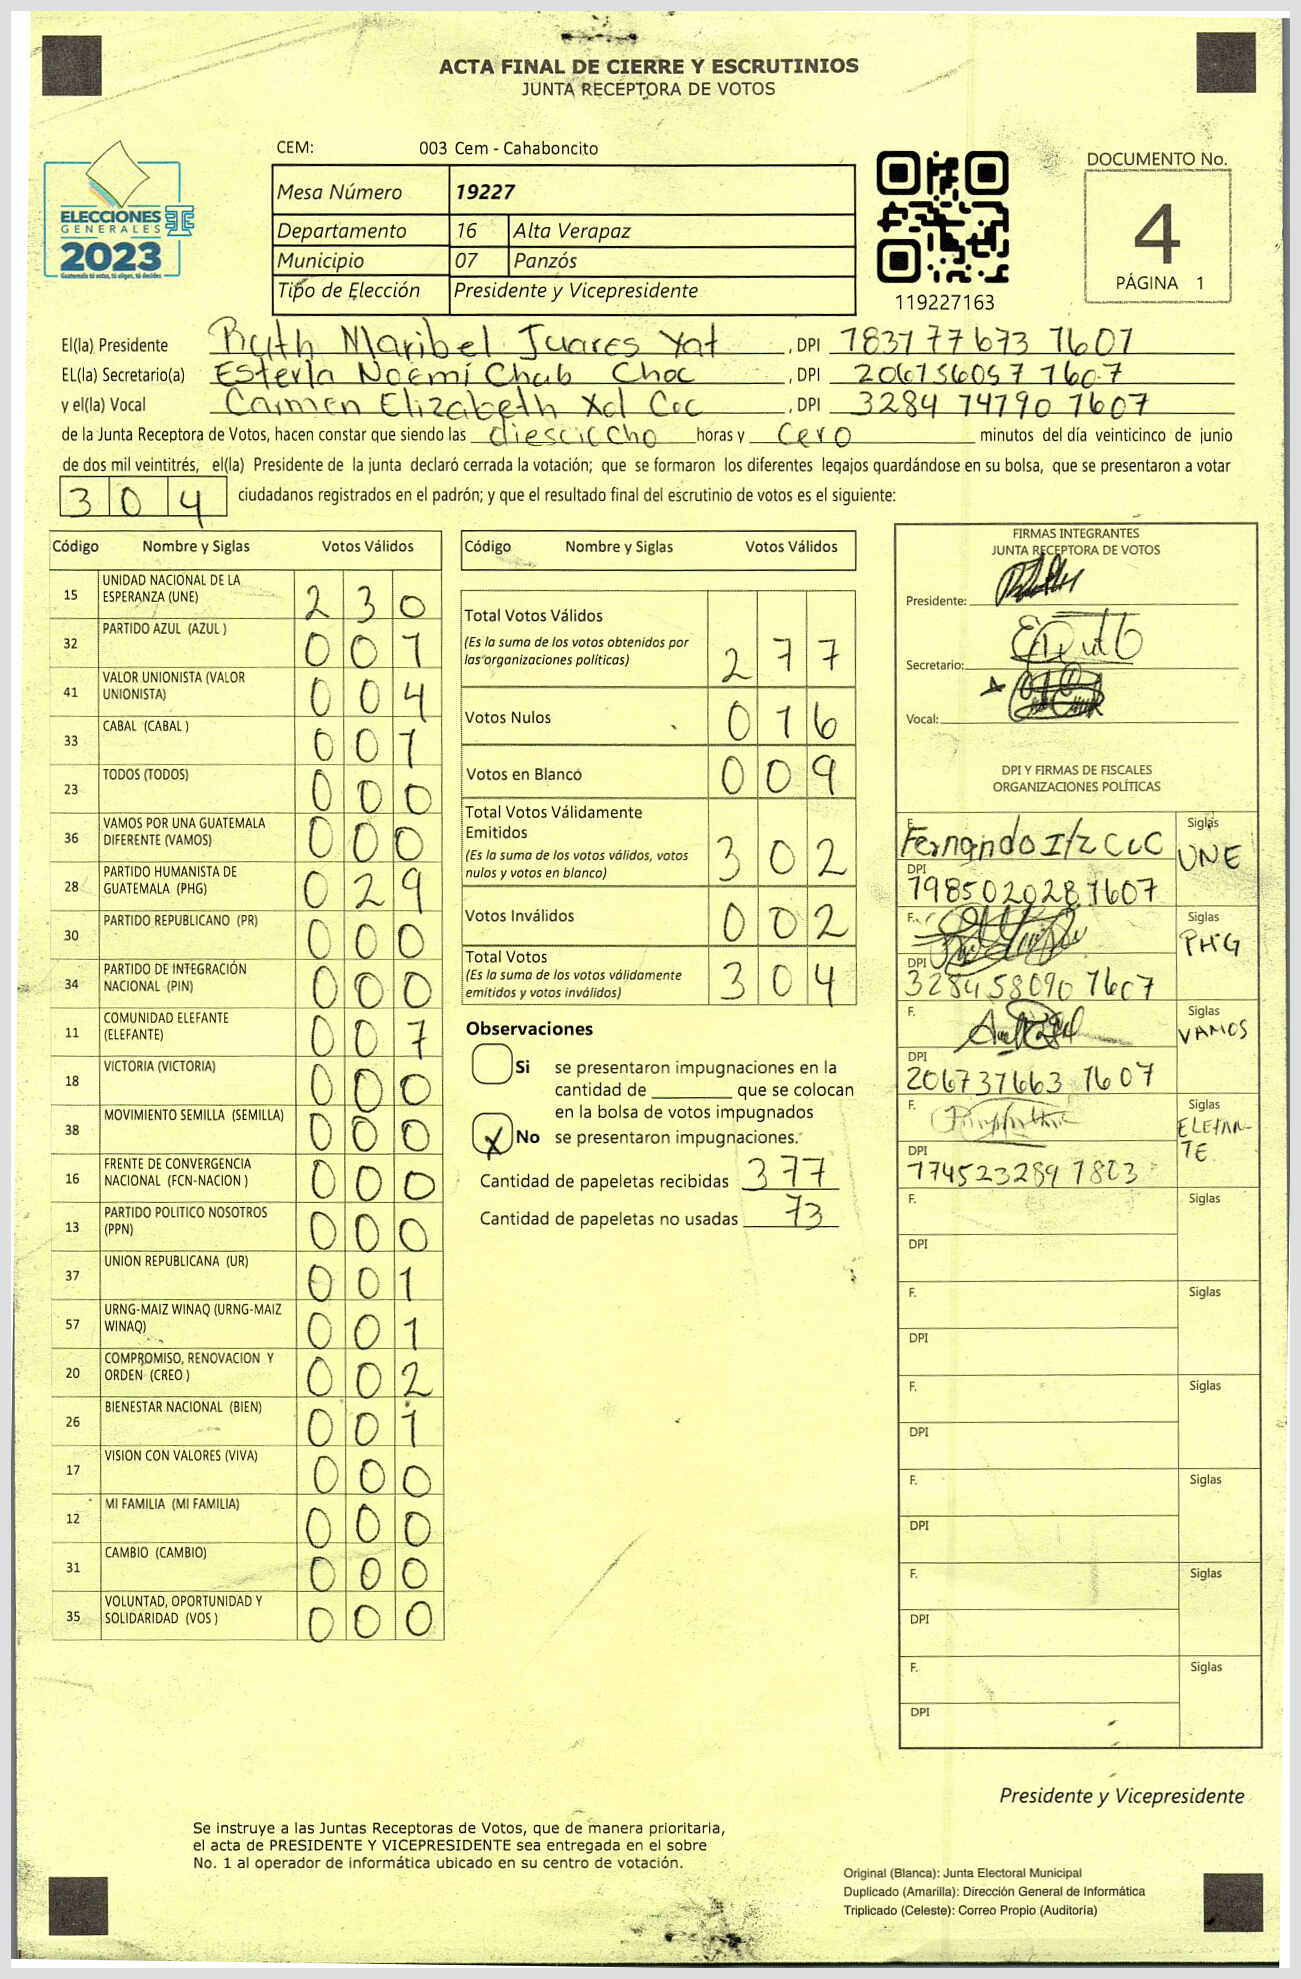 ACTA FINAL DE CIERRE Y ESCRUTINIOS
JUNTA RECEPTORA DE VOTOS
CEM: 003 Cem - Cahaboncito
Mesa Número 19227
Departamento 16 Alta Verapaz
Municipio 07 Panzós
Tipo de Elección Presidente y Vicepresidente
ELECCIONES
GENERALES
2023
Guatemala tú votas, tú eliges, tú decides
119227163
DOCUMENTO No.
4
PÁGINA 1
El(la) Presidente Ruth Maribel Juares Yat , DPI 1831 77673 1607
EL(la) Secretario(a) Esterla Noemí Chub Choc , DPI 206756057 1607
y el(la) Vocal Carmen Elizabeth Xol Coc , DPI 3284 74790 1607
de la Junta Receptora de Votos, hacen constar que siendo las diesciocho horas y cero minutos del día veinticinco de junio
de dos mil veintitrés, el(la) Presidente de la junta declaró cerrada la votación; que se formaron los diferentes legajos guardándose en su bolsa, que se presentaron a votar
304 ciudadanos registrados en el padrón; y que el resultado final del escrutinio de votos es el siguiente:
Código Nombre y Siglas Votos Válidos
15 UNIDAD NACIONAL DE LA ESPERANZA (UNE) 230
32 PARTIDO AZUL (AZUL ) 001
41 VALOR UNIONISTA (VALOR UNIONISTA) 004
33 CABAL (CABAL ) 001
23 TODOS (TODOS) 000
36 VAMOS POR UNA GUATEMALA DIFERENTE (VAMOS) 000
28 PARTIDO HUMANISTA DE GUATEMALA (PHG) 029
30 PARTIDO REPUBLICANO (PR) 000
34 PARTIDO DE INTEGRACIÓN NACIONAL (PIN) 000
11 COMUNIDAD ELEFANTE (ELEFANTE) 007
18 VICTORIA (VICTORIA) 000
38 MOVIMIENTO SEMILLA (SEMILLA) 000
16 FRENTE DE CONVERGENCIA NACIONAL (FCN-NACION ) 000
13 PARTIDO POLITICO NOSOTROS (PPN) 000
37 UNION REPUBLICANA (UR) 001
57 URNG-MAIZ WINAQ (URNG-MAIZ WINAQ) 001
20 COMPROMISO, RENOVACION Y ORDEN (CREO ) 002
26 BIENESTAR NACIONAL (BIEN) 001
17 VISION CON VALORES (VIVA) 000
12 MI FAMILIA (MI FAMILIA) 000
31 CAMBIO (CAMBIO) 000
35 VOLUNTAD, OPORTUNIDAD Y SOLIDARIDAD (VOS ) 000
Código Nombre y Siglas Votos Válidos
Total Votos Válidos 277
(Es la suma de los votos obtenidos por
las organizaciones políticas)
Votos Nulos 016
Votos en Blanco 009
Total Votos Válidamente
Emitidos 302
(Es la suma de los votos válidos, votos
nulos y votos en blanco)
Votos Inválidos 002
Total Votos 304
(Es la suma de los votos válidamente
emitidos y votos inválidos)
Observaciones
Si se presentaron impugnaciones en la
cantidad de ________ que se colocan
en la bolsa de votos impugnados
X No se presentaron impugnaciones.
Cantidad de papeletas recibidas 377
Cantidad de papeletas no usadas 73
FIRMAS INTEGRANTES
JUNTA RECEPTORA DE VOTOS
Presidente:
Secretario:
Vocal:
DPI Y FIRMAS DE FISCALES
ORGANIZACIONES POLÍTICAS
F. Fernando Siglas UNE
DPI 198502028 1607
F. Siglas PHG
DPI 328458090 1607
F. Siglas VAMOS
DPI 206737663 1607
F. Siglas ELEFAN-
TE
DPI 174523289 1803
F. Siglas
DPI
F. Siglas
DPI
F. Siglas
DPI
F. Siglas
DPI
F. Siglas
DPI
F. Siglas
DPI
Presidente y Vicepresidente
Se instruye a las Juntas Receptoras de Votos, que de manera prioritaria,
el acta de PRESIDENTE Y VICEPRESIDENTE sea entregada en el sobre
No. 1 al operador de informática ubicado en su centro de votación.
Original (Blanca): Junta Electoral Municipal
Duplicado (Amarilla): Dirección General de Informática
Triplicado (Celeste): Correo Propio (Auditoría)